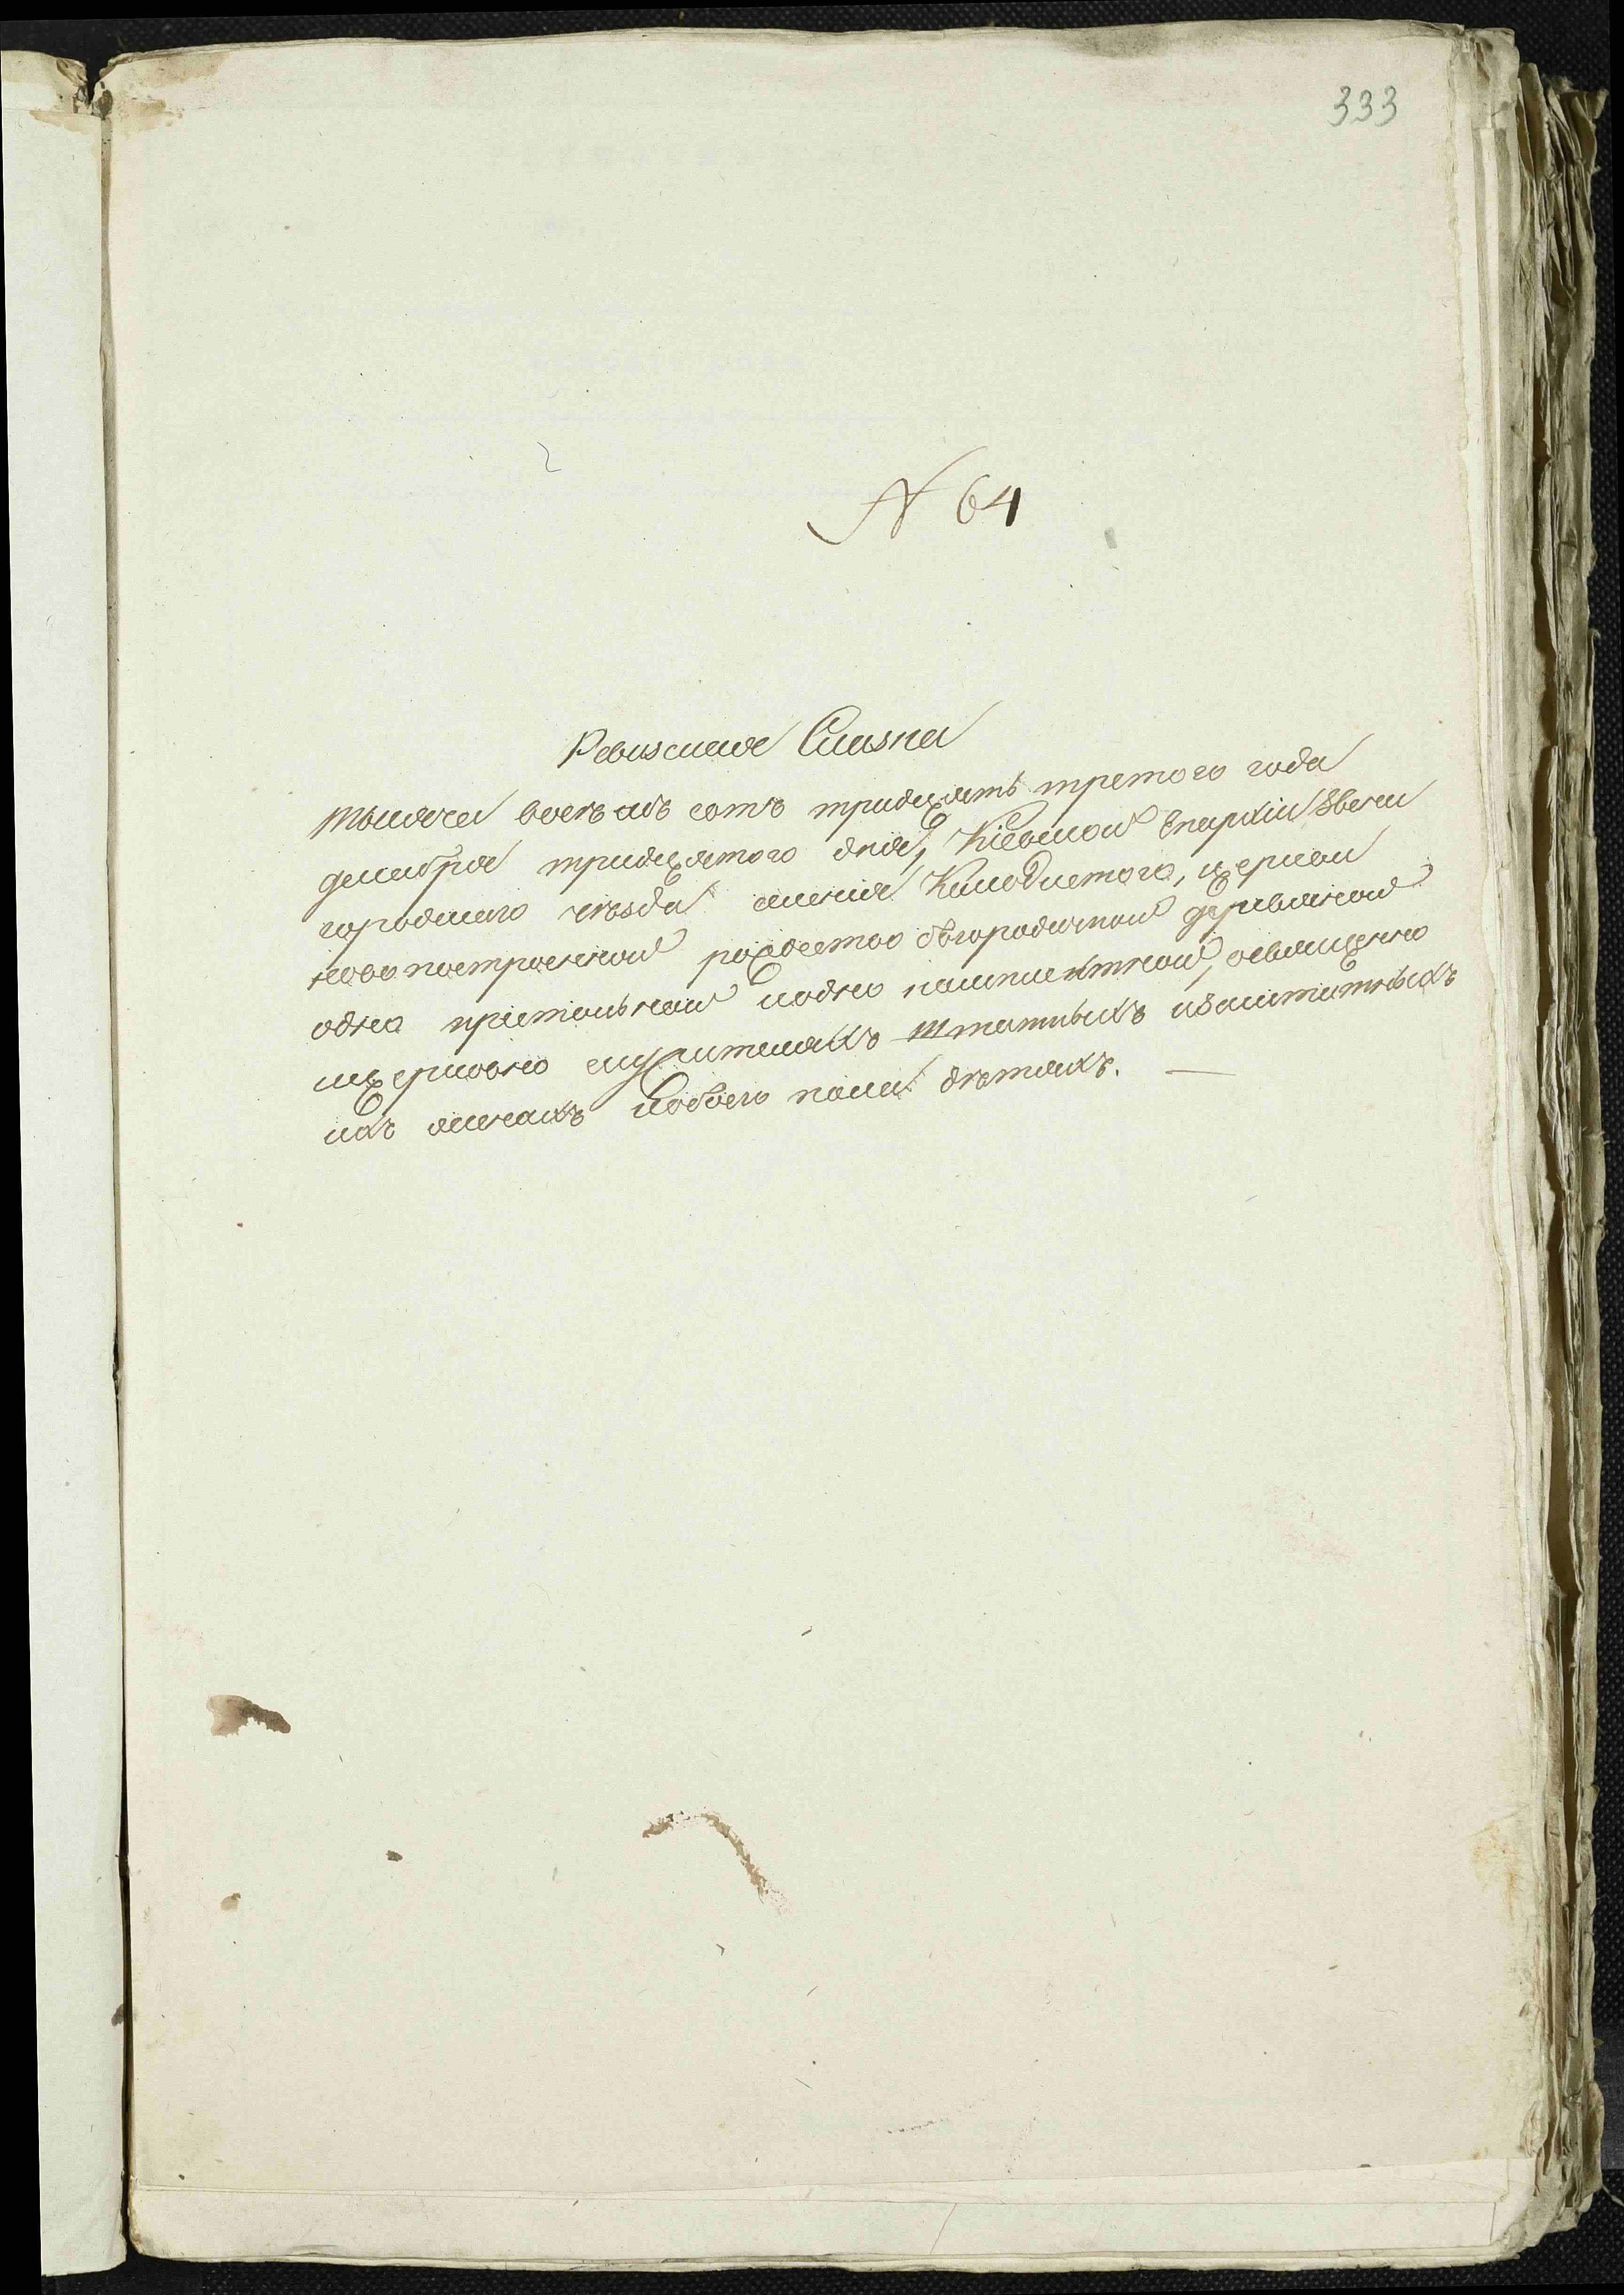 333
N 64
Ревизская Сказка
Тысяча восемь сотъ тридцять третого года
декабря тридцятого дня, Кіевской Епархіи Звени
городского уезда селения Княжистого, церкви
новопостроенной рождество богородичной деревяной
одно пристольной и одно комплектной, о священно
и церковно служителяхъ штатныхъ и заштатныхъ
ихъ женахъ и обоего пола детяхъ. —